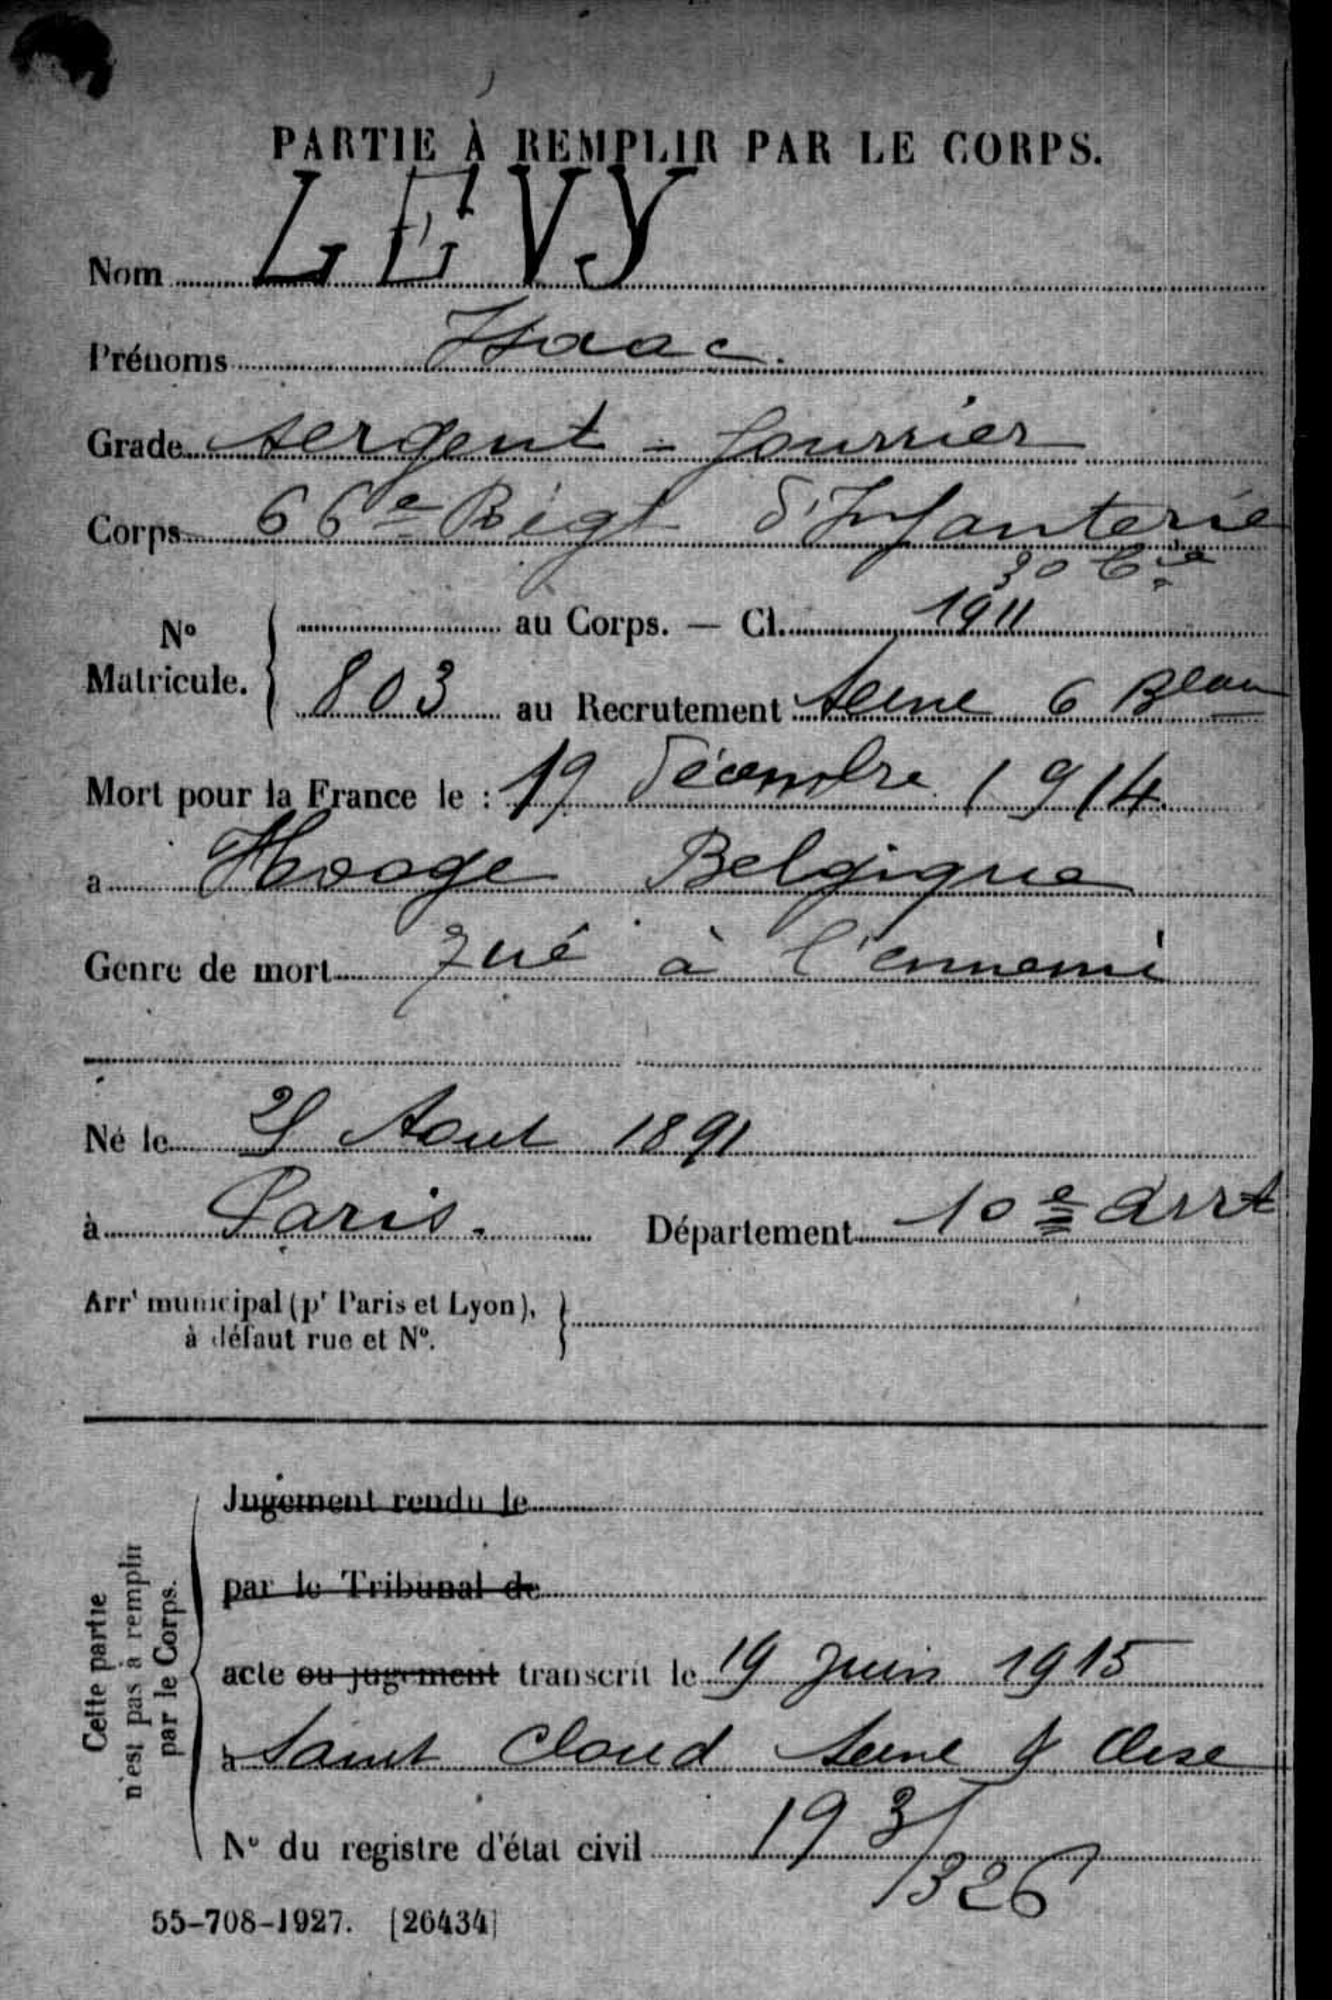 PARTIE À REMPLIR PAR LE CORPS.
Nom LEVY
Prénoms Isaac.
Grade sergent - fourrier
Corps 66e Régt d'Infanterie
30 Cie
No Matricule. au Corps. — Cl. 1911
803 au Recrutement Seine 6 Beau
Mort pour la France le : 19 décembre 1914
a Hooge Belgique
Genre de mort Tué à l'ennemi
Né le Aout 1891
à Paris. Département 10e Arrt
Arrt municipal (pr Paris et Lyon),
à défaut rue et No.
Cette partie
n'est pas à remplir
par le Corps.
Jugement rendu le
par le Tribunal de
acte ou jugement transcrit le 19 Juin 1915
à Saint Cloud Seine & Oise
No du registre d'état civil 193/
/326
55-708-1927. [26434]